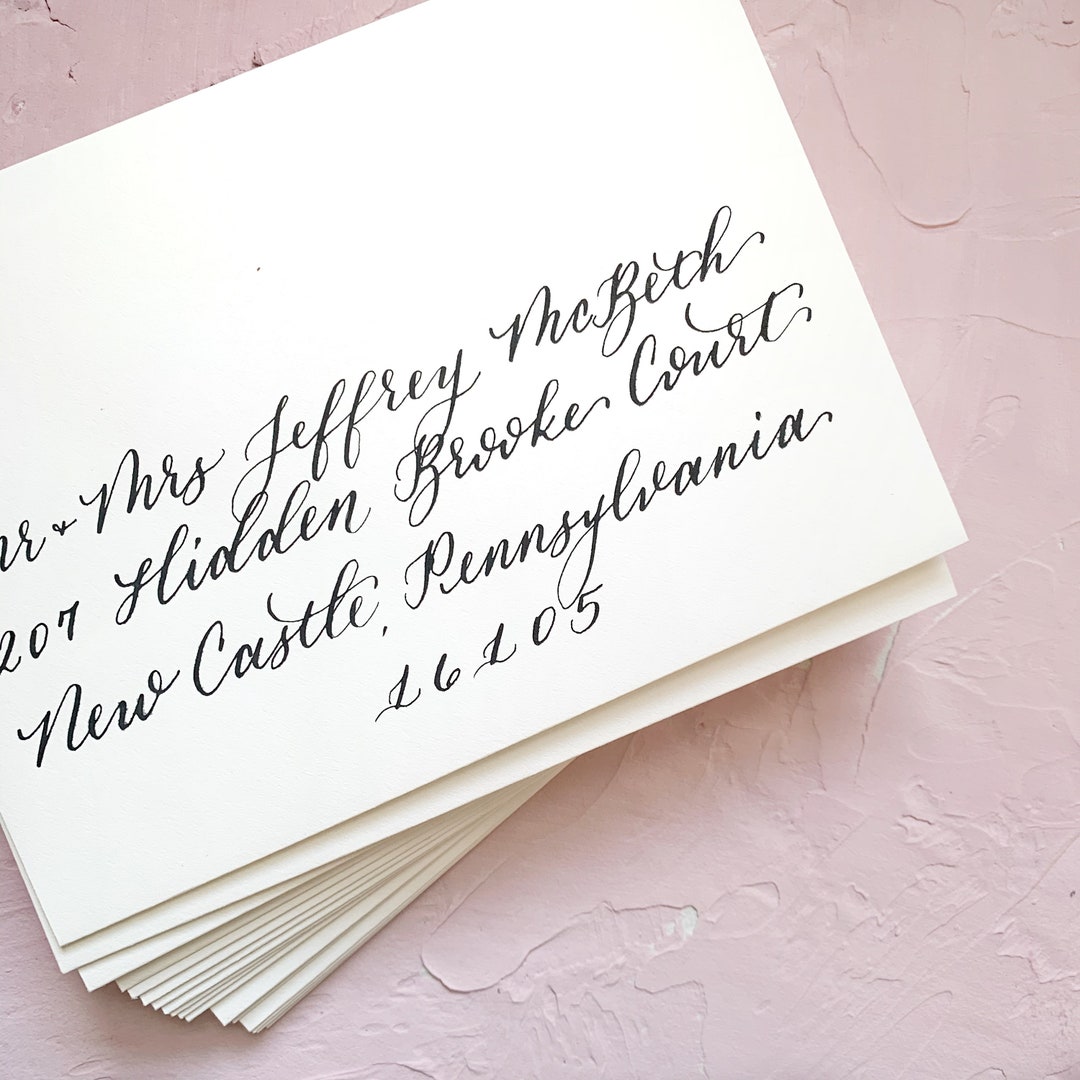 Mr & Mrs Jeffrey McBeth
207 Hidden Brooke Court
New Castle, Pennsylvania
16105